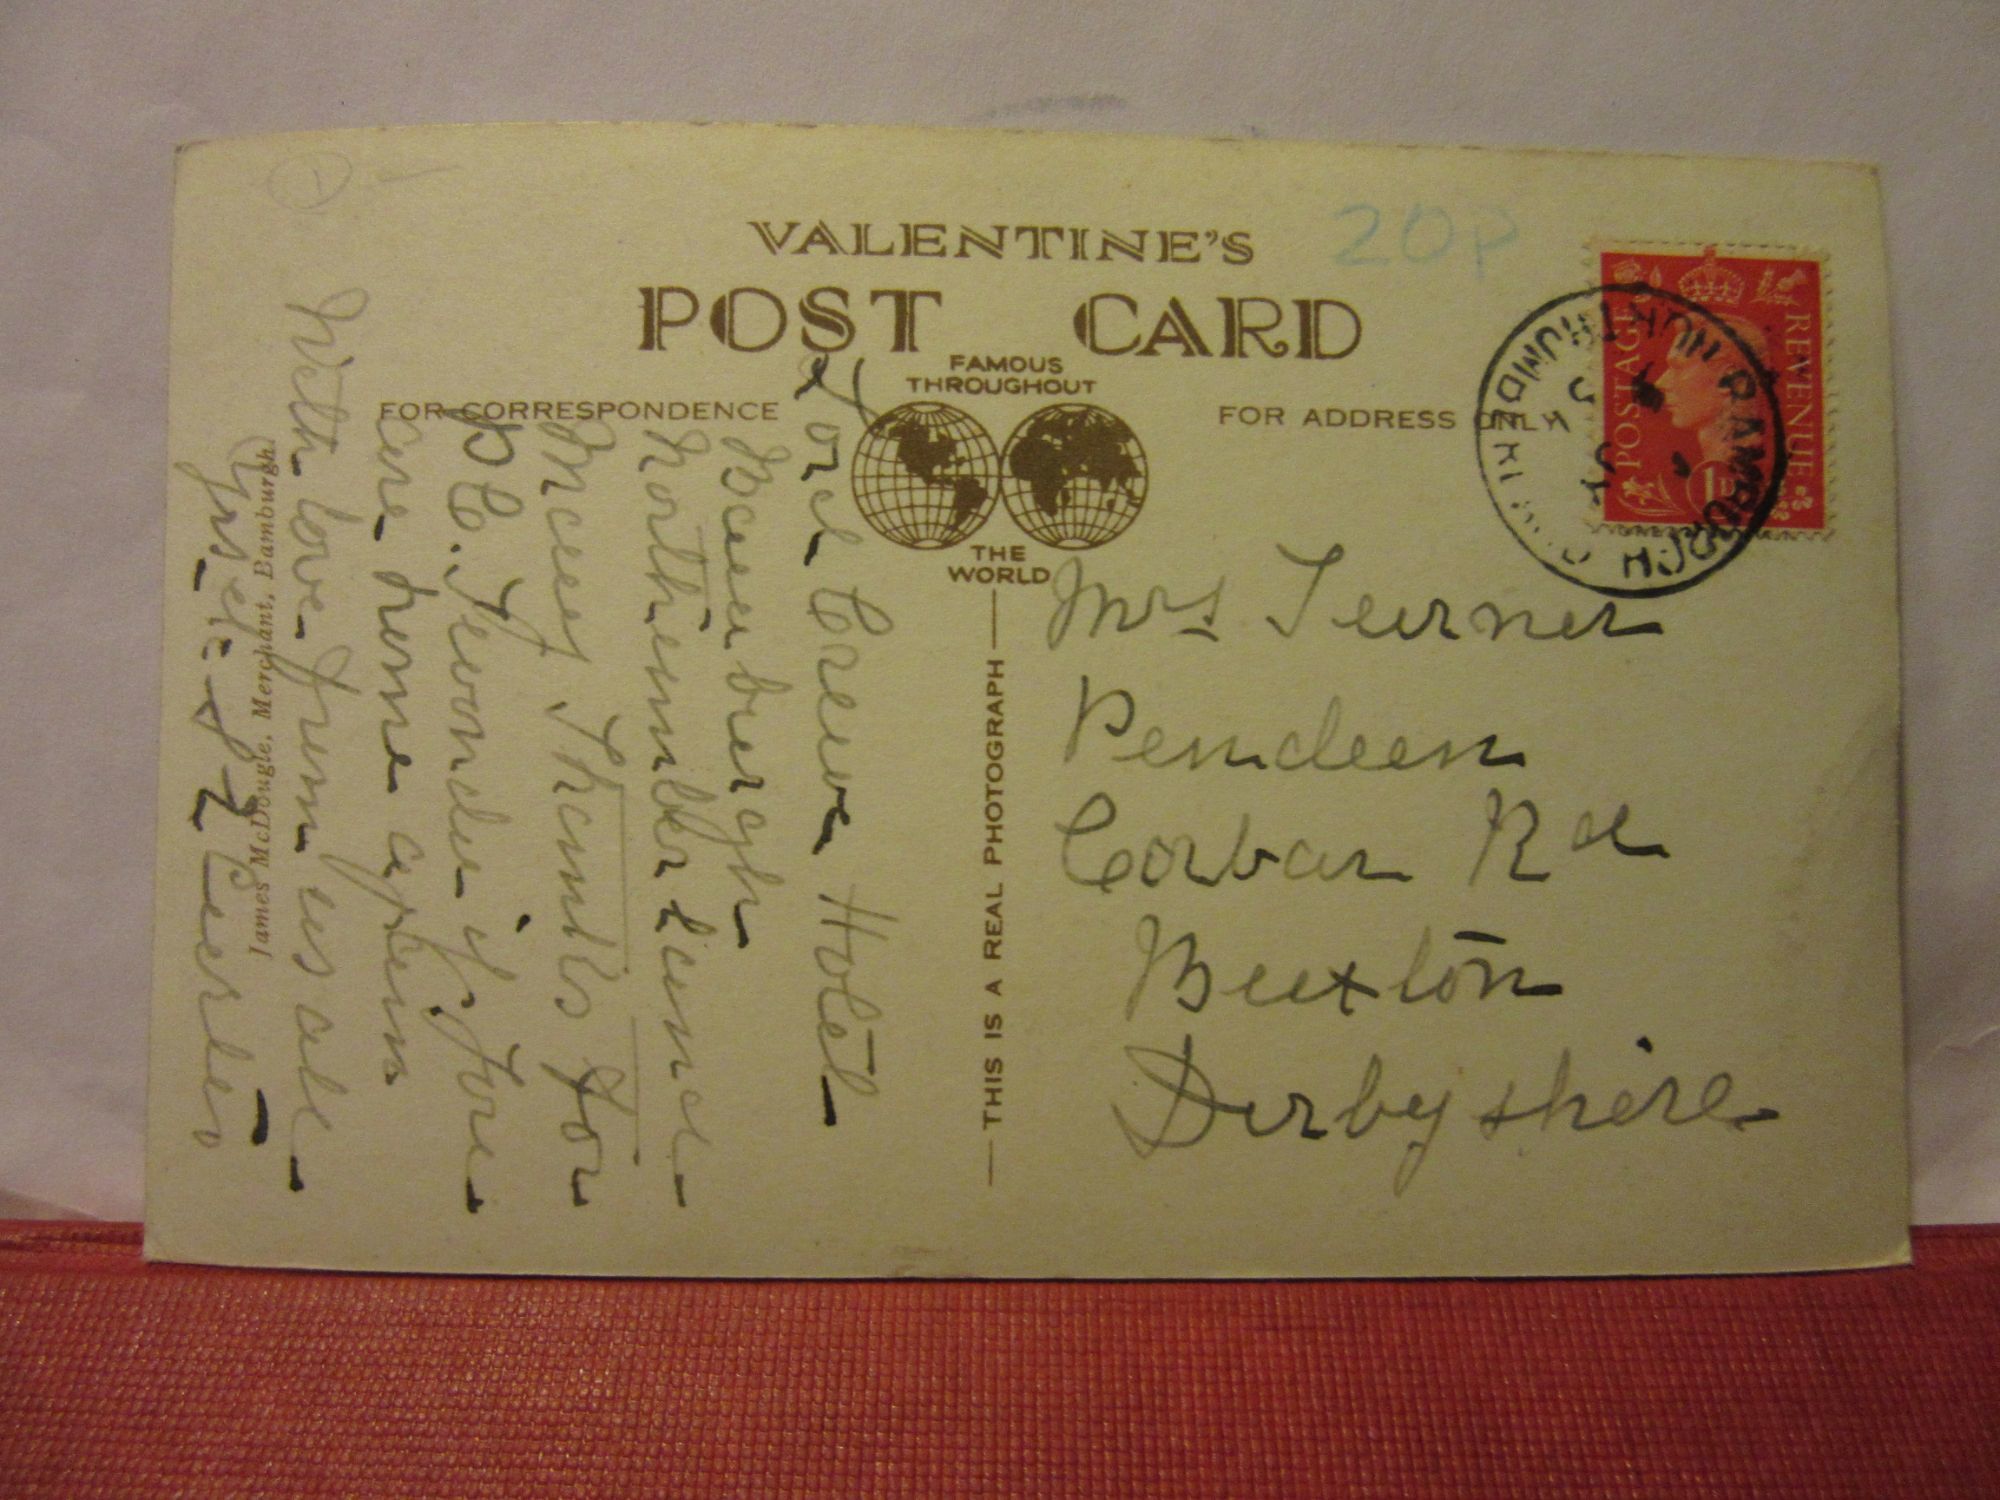 VALENTINE'S
POST CARD
FAMOUS
THROUGHOUT
THE
WORLD
FOR CORRESPONDENCE
FOR ADDRESS ONLY
20P
POSTAGE
REVENUE
BAMBURGH
THIS IS A REAL PHOTOGRAPH
James McDougle, Merchant, Bamburgh.
Lord Crewe Hotel
Bamburgh
Northumberland
Many Thanks for
P.C. I wonder if you
are home again
With love from us all
Mrs Turner
Pendeen
Corbar Rd
Buxton
Derbyshire